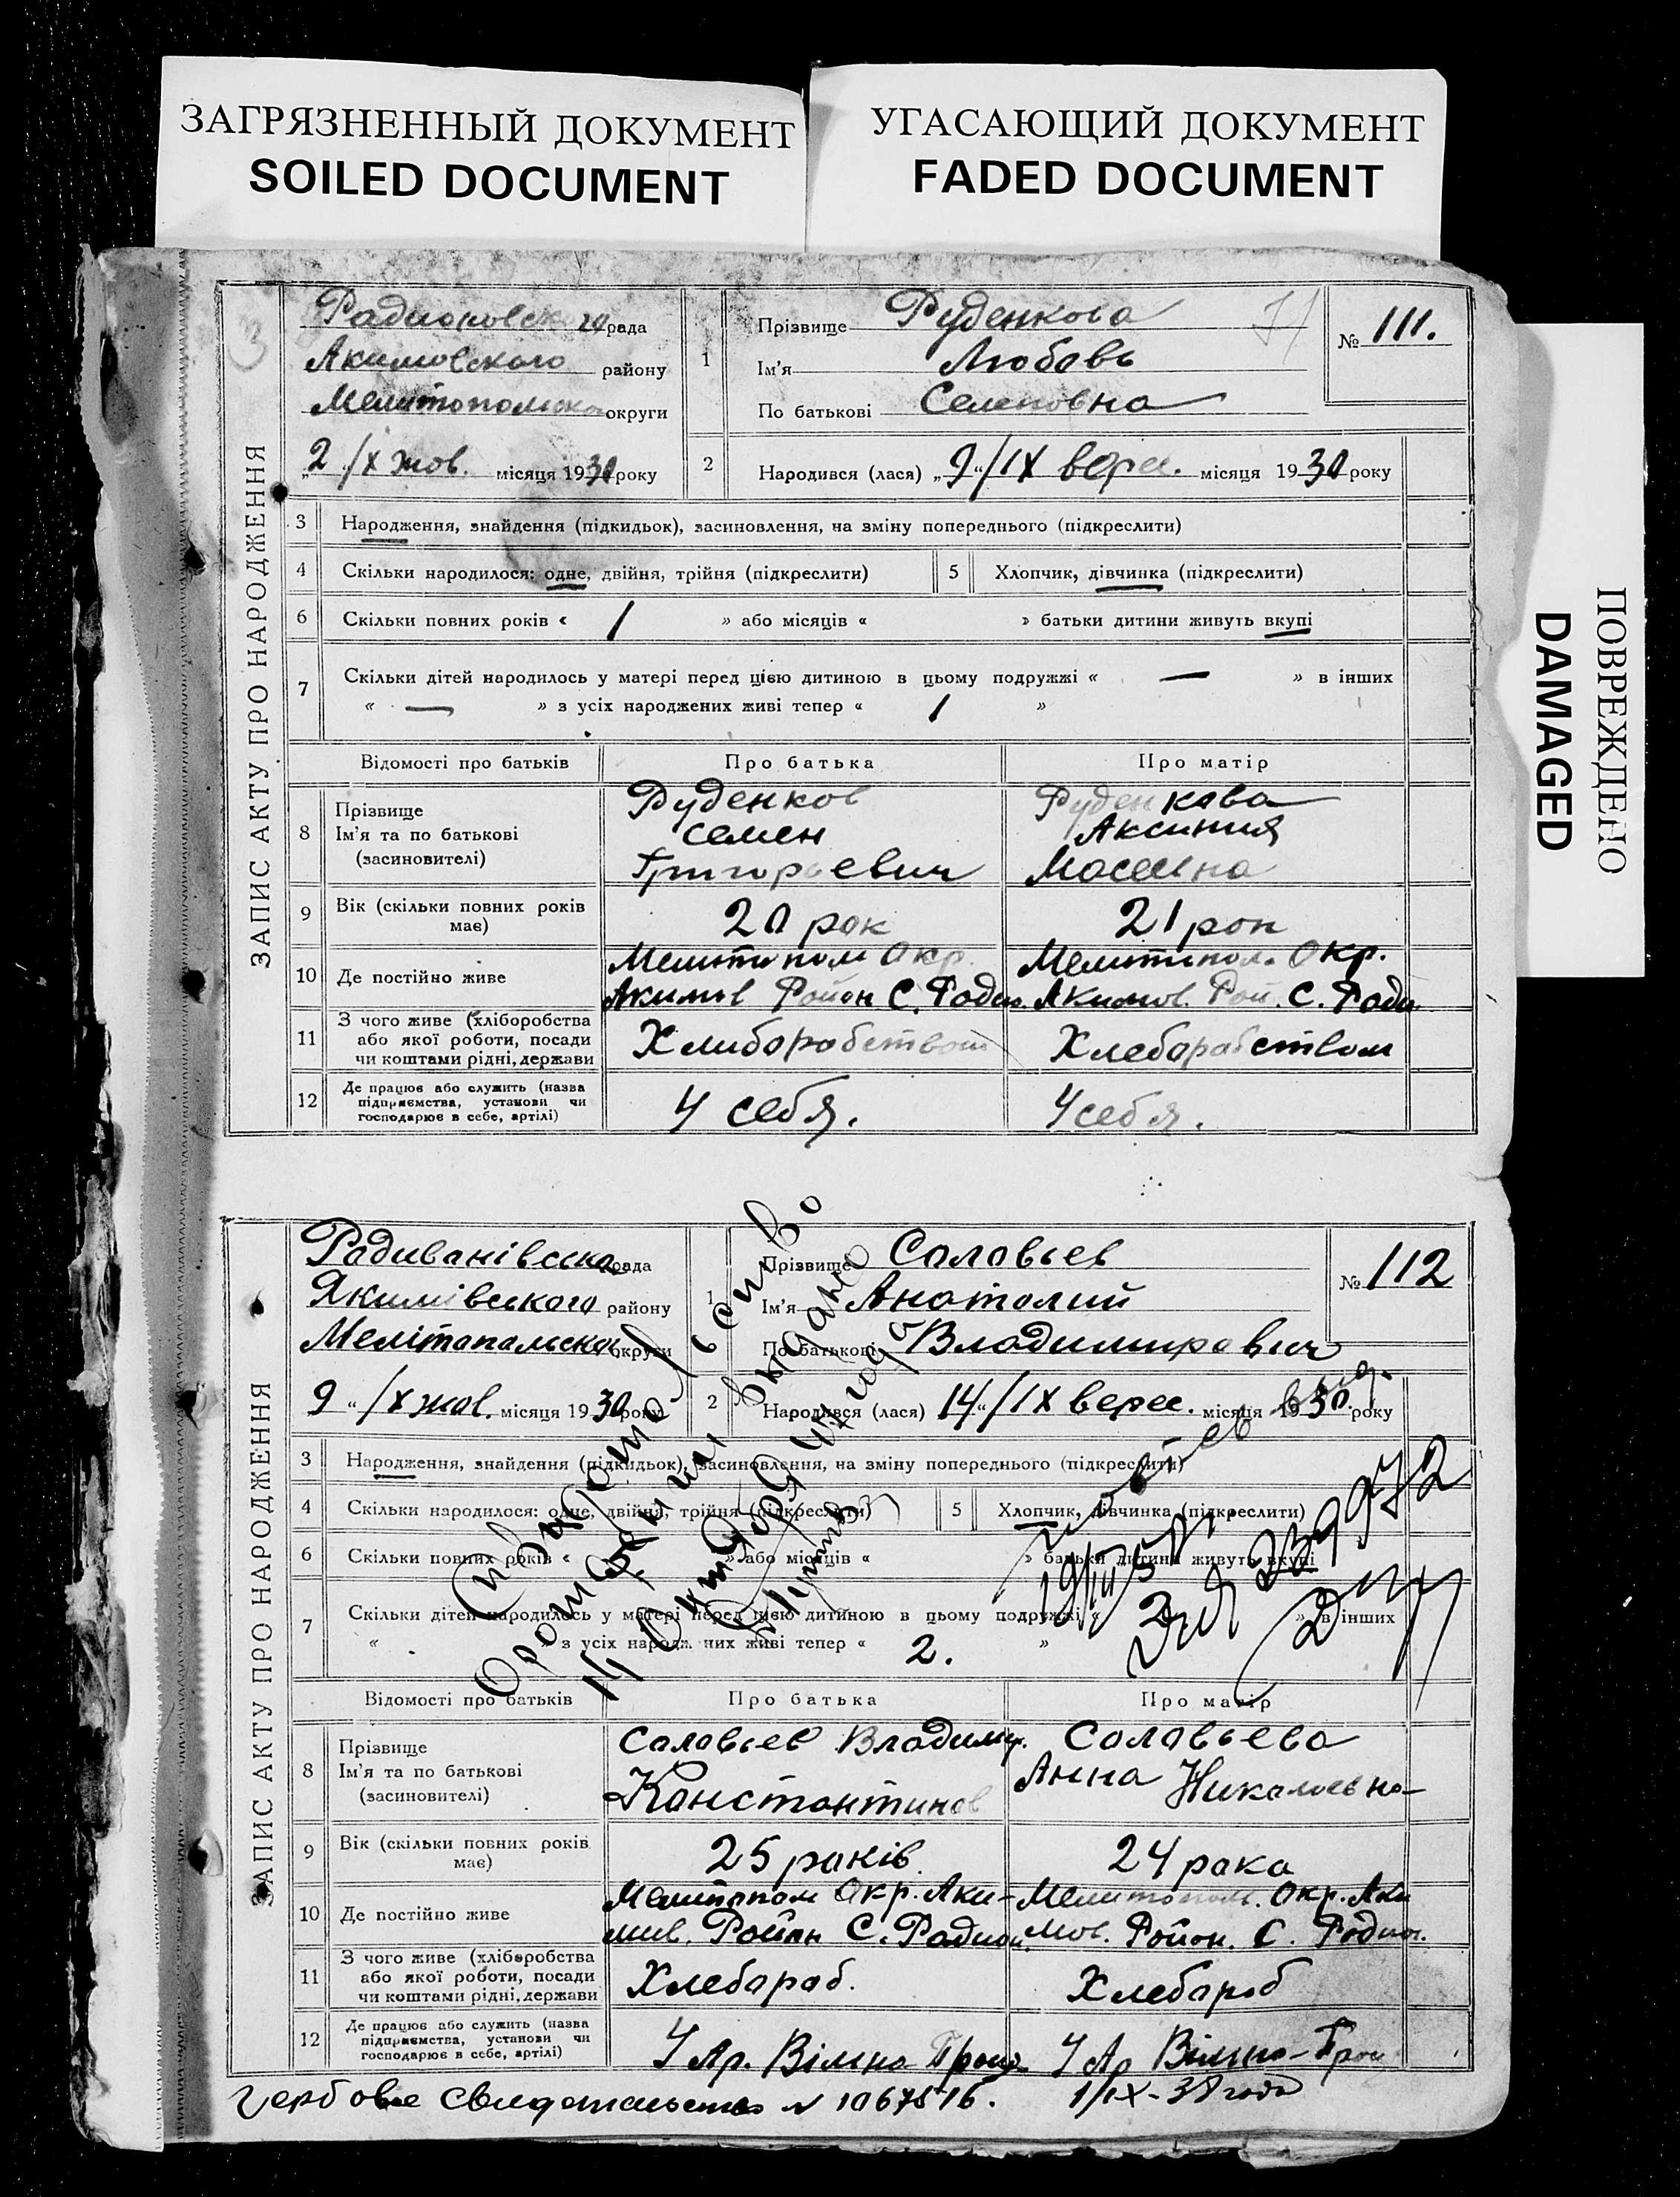 ЗАГРЯЗНЕННЫЙ ДОКУМЕНТ
SOILED DOCUMENT
УГАСАЮЩИЙ ДОКУМЕНТ
FADED DOCUMENT
ПОВРЕЖДЕНО
DAMAGED
ЗАПИС АКТУ ПРО НАРОДЖЕННЯ
рада
Акимовского району
Мелитопольско округи
2 /X жов. місяця 1930 року
1 Прізвище Руденкова
Ім'я Любовь
По батькові Семеновна
№ 111.
2 Народився (лася) „9“/IX верес. місяця 1930 року
3 Народження, знайдення (підкидьок), засиновлення, на зміну попереднього (підкреслити)
4 Скільки народилося: одне, двійня, трійня (підкреслити) 5 Хлопчик, дівчинка (підкреслити)
6 Скільки повних років « 1 » або місяців « » батьки дитини живуть вкупі
7 Скільки дітей народилось у матері перед цією дитиною в цьому подружжі « — » в інших
« — » з усіх народжених живі тепер « 1 »
Відомості про батьків Про батька Про матір
8 Прізвище
Ім'я та по батькові
(засиновителі)
Руденков
Семен
Григорьевич
Руденкова
Аксиния
9 Вік (скільки повних років
має)
20 рок
21 рок
10 Де постійно живе
Мелитопол Окр.
Акимов Район С. Радио
Мелитопол. Окр.
Акимов. Рай. С. Ради
11 З чого живе (хліборобства
або якої роботи, посади
чи коштами рідні, держави
Хлиборобством
Хлеборобством
12 Де працює або служить (назва
підприємства, установи чи
господарює в себе, артілі)
У себя.
У себя.
ЗАПИС АКТУ ПРО НАРОДЖЕННЯ
Радиванівська рада
Якимівського району
Мелітопальскои округи
9 “/X жов. місяця 1930 року
1 Прізвище Саловьев
Ім'я Анатолий
По батькові Владимирович
№ 112
2 Народився (лася) 14“/IX верес. місяця 1930. року
3 Народження, знайдення (підкидьок), засиновлення, на зміну попереднього (підкреслити)
4 Скільки народилося: одне, двійня, трійня (підкреслити) 5 Хлопчик, дівчинка (підкреслити)
6 Скільки повних років « » або місяців « » батьки дитини живуть вкупі
7 Скільки дітей народилось у матері перед цією дитиною в цьому подружжі « 2 » в інших
« » з усіх народжених живі тепер « 2. »
239972
Відомості про батьків Про батька Про матір
8 Прізвище
Ім'я та по батькові
(засиновителі)
Саловьев Владимир.
Канстантинов
Соловьева
Анна Никалаевна
9 Вік (скільки повних років
має)
25 раків
24 рака
10 Де постійно живе
Мелитопол Окр. Аки-
мив. Район С. Радион.
Мелитопол. Окр. Аки
мов. Район. С. Радион.
11 З чого живе (хліборобства
або якої роботи, посади
чи коштами рідні, держави
Хлебараб.
Хлебароб
12 Де працює або служить (назва
підприємства, установи чи
господарює в себе, артілі)
У Ар. Вільна
У Ар Вільна
Гербовое свидетельство № 1067516. 1/IX-38 года